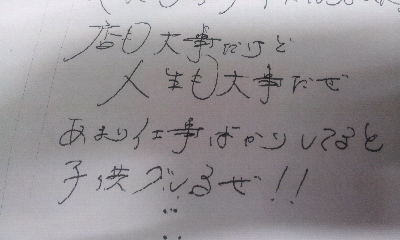 店も大事だけど
人生も大事だぜ
あまり仕事ばかりしてると
子供グレるぜ!!